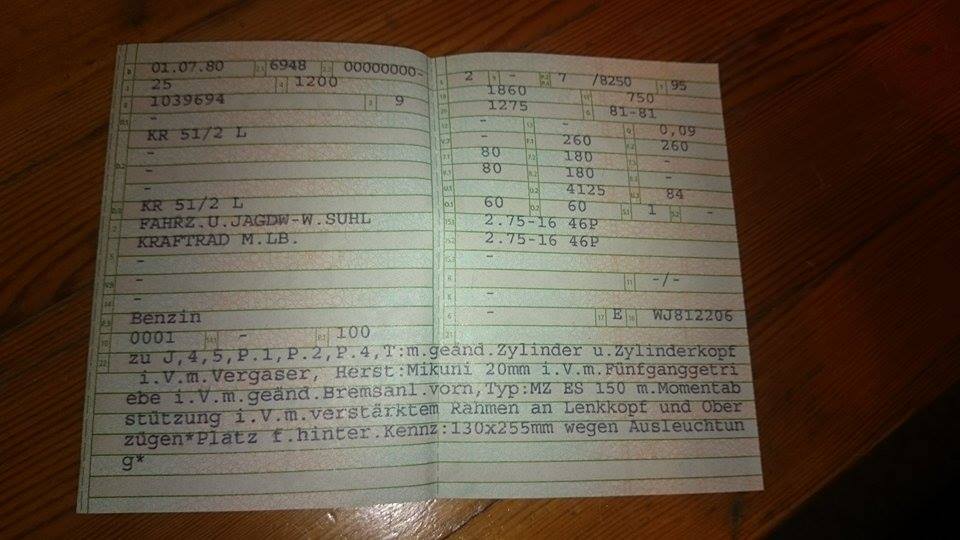 01.07.80 6948 00000000-
25 1200
1039694 9
-
KR 51/2 L
-
-
-
KR 51/2 L
FAHRZ.U.JAGDW-W.SUHL
KRAFTRAD M.LB.
-
-
-
Benzin
0001 - 100
2 - 7 /8250 95
1860 750
1275 81-81
- - 0,09
- 260 260
80 180 -
80 180 -
4125 84
60 60 1 -
2.75-16 46P
2.75-16 46P
-
-/-
-
- E WJ812206
zu J,4,5,P.1,P.2,P.4,T:m.geänd.Zylinder u.Zylinderkopf
i.V.m.Vergaser, Herst:Mikuni 20mm i.V.m.Fünfganggetri
ebe i.V.m.geänd.Bremsanl.vorn,Typ:MZ ES 150 m.Momentab
stützung i.V.m.verstärktem Rahmen an Lenkkopf und Ober
zügen*Platz f.hinter.Kennz:130x255mm wegen Ausleuchtun
g*